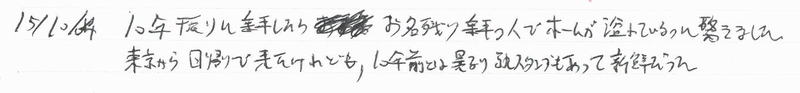 15/10/24 10年振りに乗車したら お名残り乗車の人でホームが溢れているのに驚きました
東京から日帰りで来たけれども, 10年前とは異なり駅スタンプもあって新鮮だった